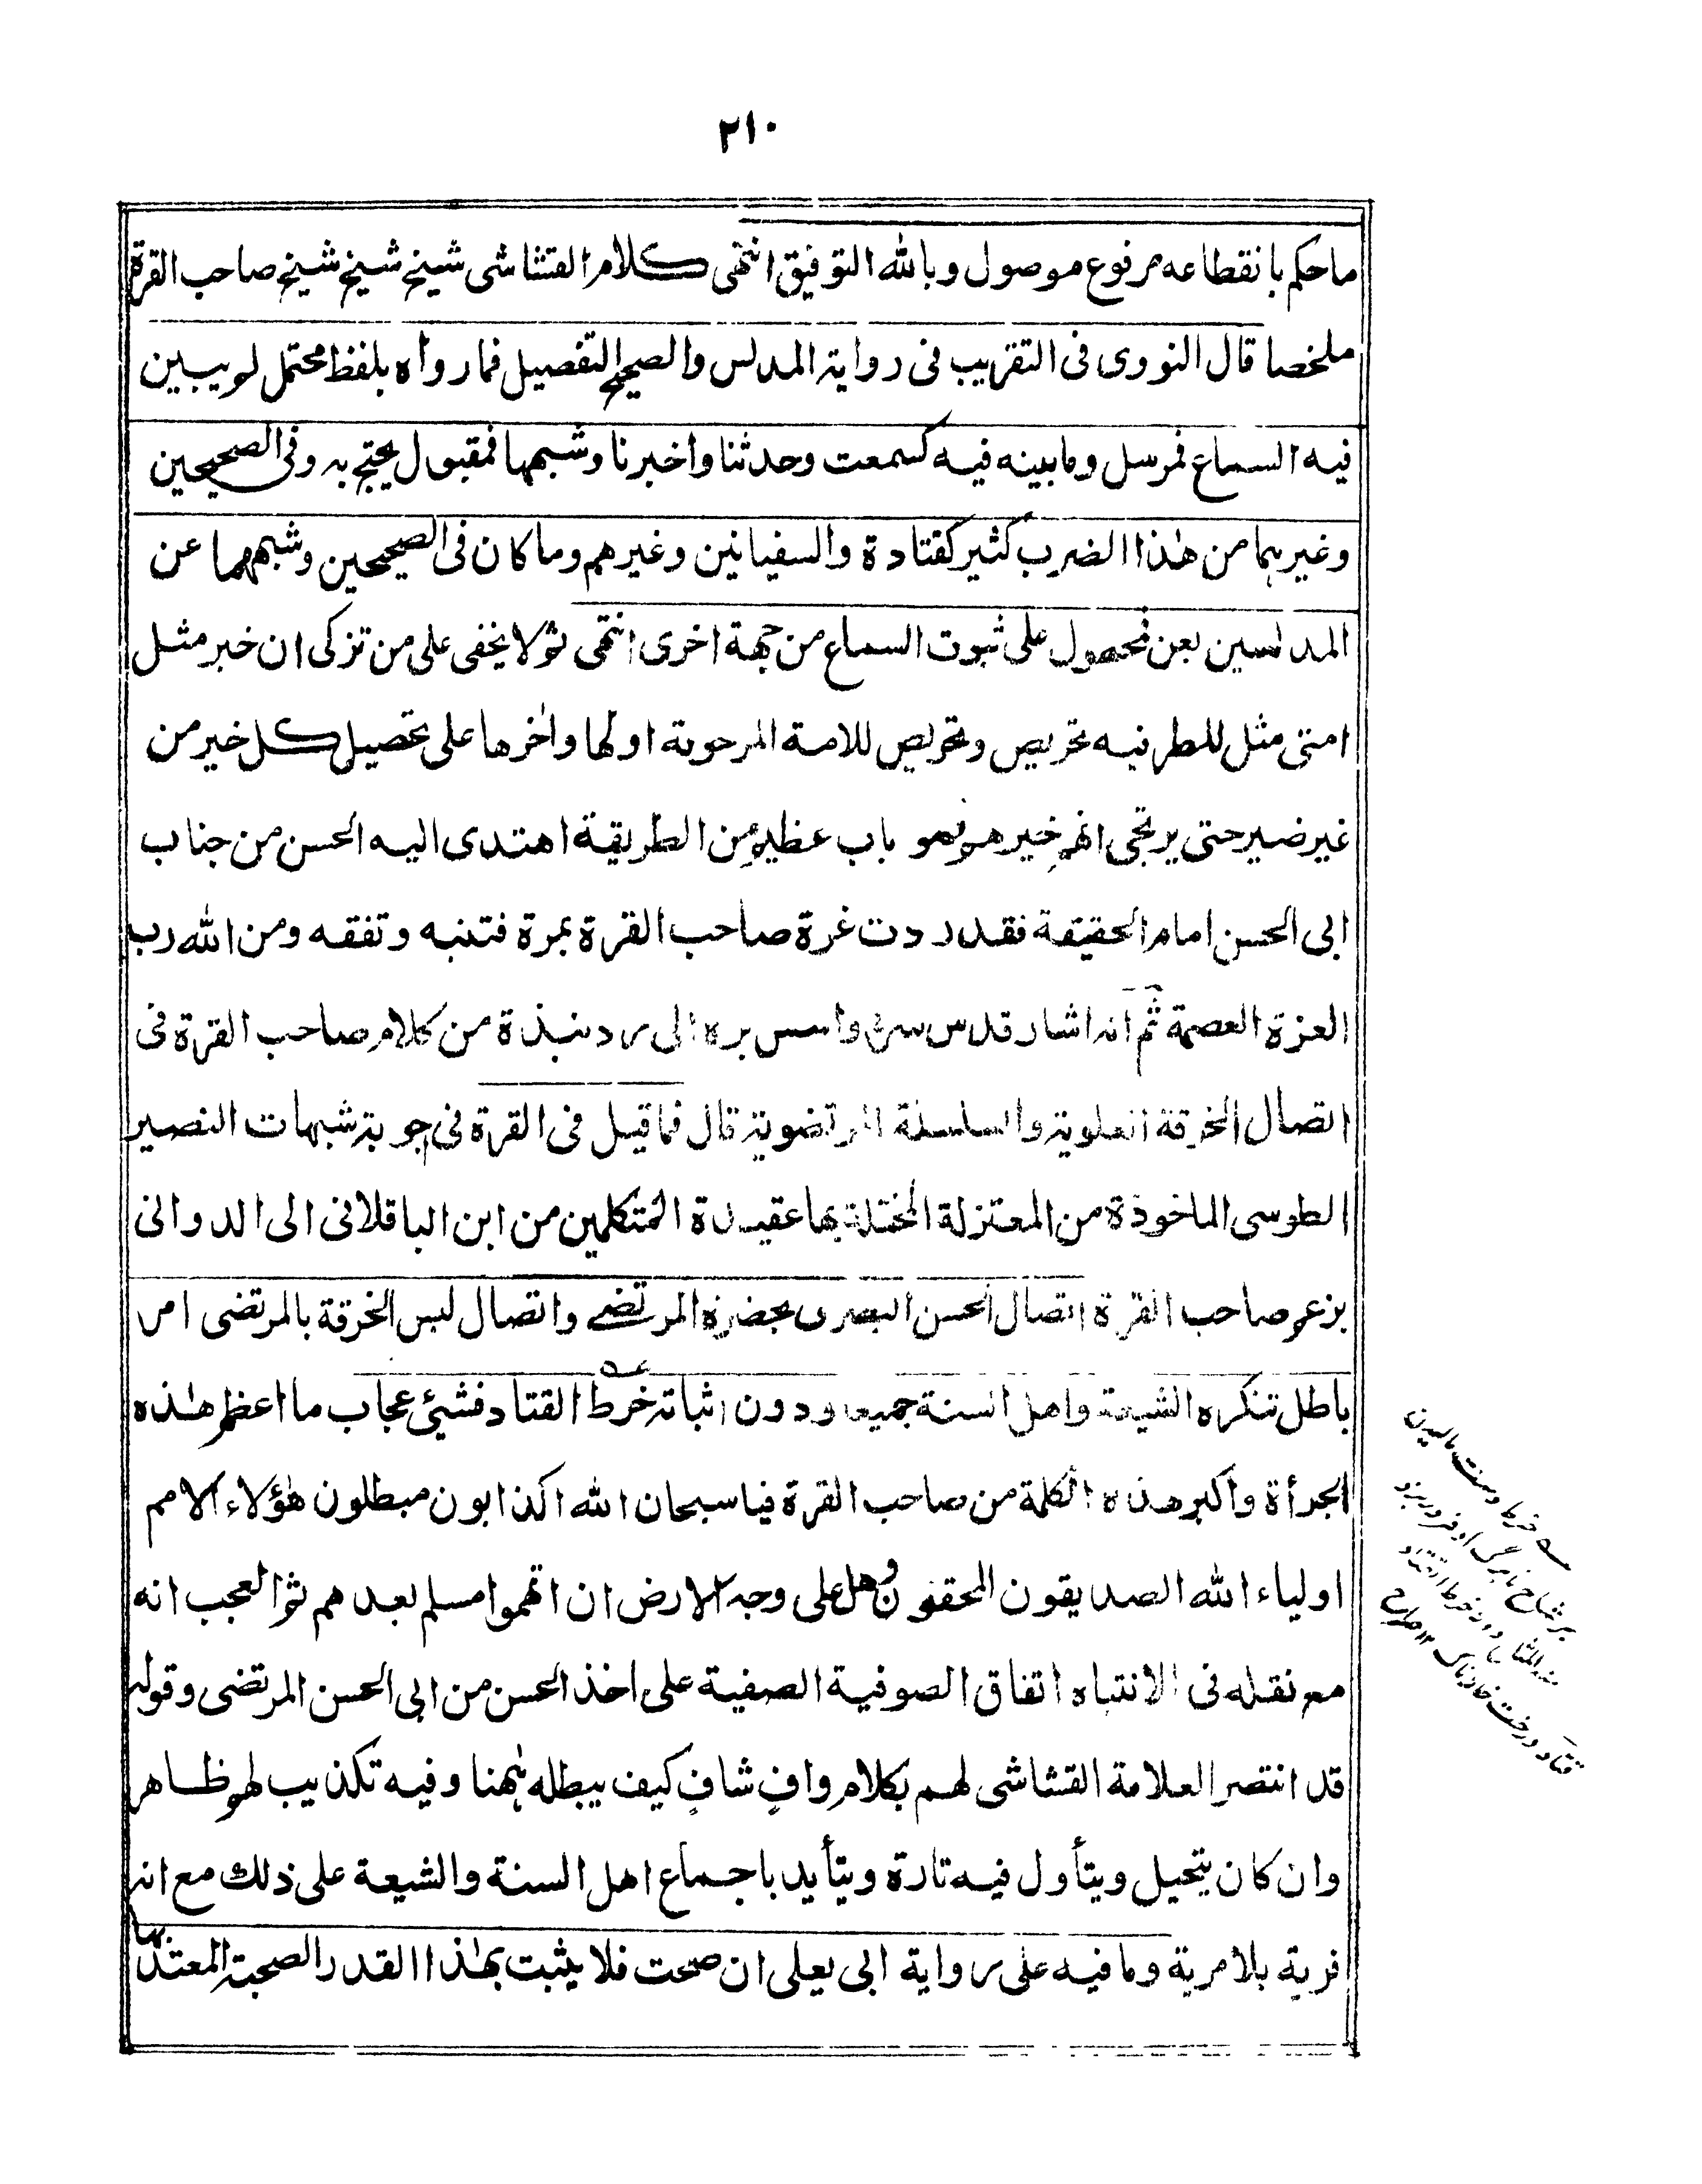 ٢١٠
ما حكم بانقطاعه مرفوع موصول وبالله التوفيق انتهى كلام القشاشى شيخ شيخ شيخ صاحب القرة
ملخصا قال النووى فى التقريب فى رواية المدلس والصحيح التفصيل فما رواه بلفظ محتمل لم يبين
فيه السماع فمرسل وما بينه فيه كسمعت وحدثنا واخبرنا وشبهها فمقبول يحتج به وفى الصحيحين
وغيرهما من هذا الضرب كثير كقتادة والسفيانين وغيرهم وما كان فى الصحيحين وشبههما عن
المدلسين بعن فمحمول على ثبوت السماع من جهة اخرى انتهى ثم لا يخفى على من تزكى ان خبر مثل
امتى مثل المطر فيه تحريص وتحريض للامة المرحومة اولها واخرها على تحصيل كل خير من
غير ضير حتى يرتجى انهم خيرهم فهو باب عظيم من الطريقة اهتدى اليه الحسن من جناب
ابى الحسن امام الحقيقة فقد رددت غرة صاحب القرة بمرة فتنبه وتفقه ومن الله رب
العزة العصمة ثم انه اشار قدس سره واسس بره الى رد نبذة من كلام صاحب القرة فى
اتصال الخرقة العلوية والسلسلة المرتضوية قال فما قيل فى القرة فى اجوبة شبهات النصير
الطوسى الماخوذة من المعتزلة المختلة بها عقيدة المتكلمين من ابن الباقلانى الى الدوانى
بزعم صاحب القرة اتصال الحسن البصرى بحضرة المرتضى واتصال لبس الخرقة بالمرتضى امر
باطل تنكره الشيعة واهل السنة جميعا ودون اثباته خرط القتاد فشئ عجاب ما اعظم هذه
الجرأة واكبر هذه الكلمة من صاحب القرة فيا سبحان الله اكذابون مبطلون هؤلاء الامم
اولياء الله الصديقون المحقون وهل على وجه الارض ان اتهموا مسلم بعدهم ثم العجب انه
مع نقله فى الانتباه اتفاق الصوفية الصفية على اخذ الحسن من ابى الحسن المرتضى وقوله
قد انتصر العلامة القشاشى لهم بكلام وافٍ شافٍ كيف يبطله ههنا وفيه تكذيب لهم ظاهر
وان كان يتحيل ويتأول فيه تارة ويتأيد باجماع اهل السنة والشيعة على ذلك مع انه
فرية بلا مرية وما فيه على رواية ابى يعلى ان صحت فلا يثبت بهذا القدر الصحبة المعتد بها
عه خرط دست ماليدن
بر شاخ تا برگ او فرو ريزد
منه المثل دون خرط القتاد
قتاد درخت خارناك ١٢ صراح